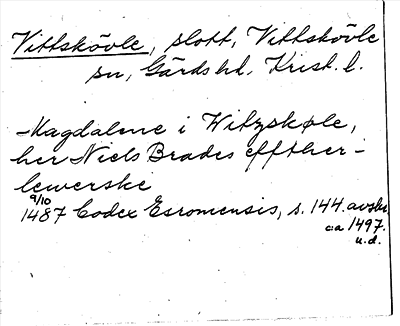 Vittskövle, slott, Vittskövle
sn, Gärds hd, Krist. l.
Magdalene i Witzskøle,
her Niels Brades effther-
lewerske
9/10
1487 Codex Esromensis, s. 144. avskr.
ca 1497.
u.d.